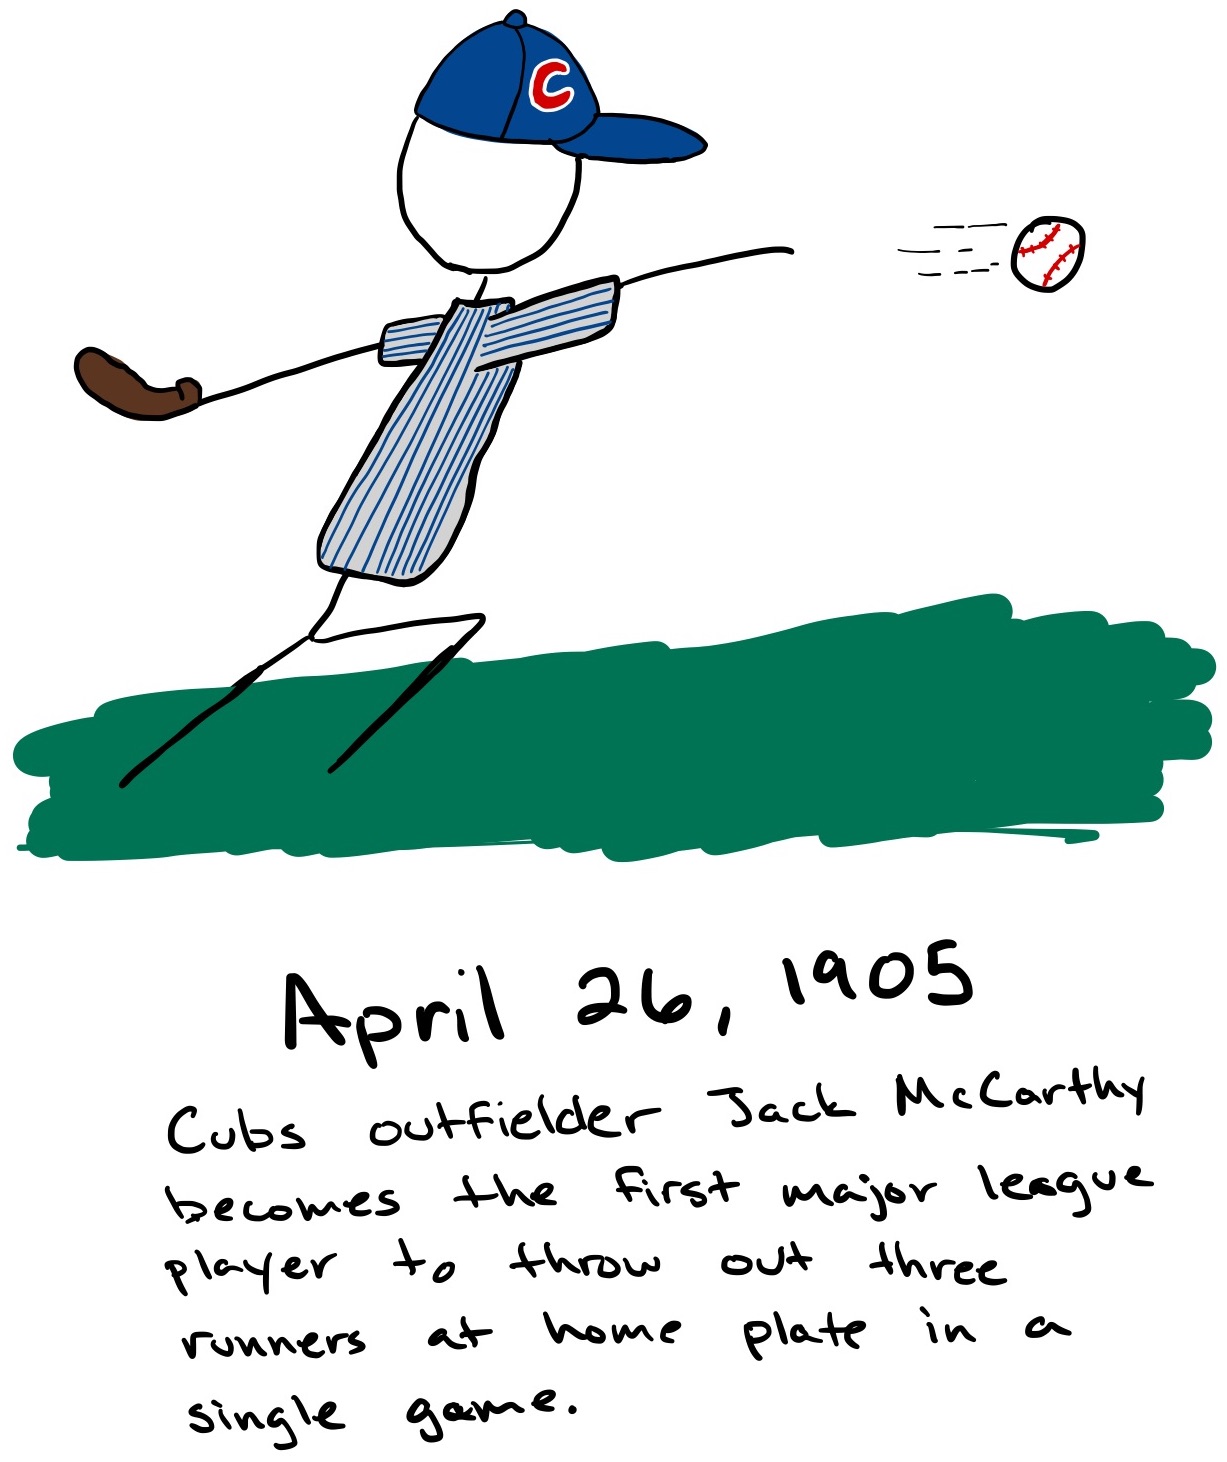 C
April 26, 1905
Cubs outfielder Jack McCarthy
becomes the first major league
player to throw out three
runners at home plate in a
single game.